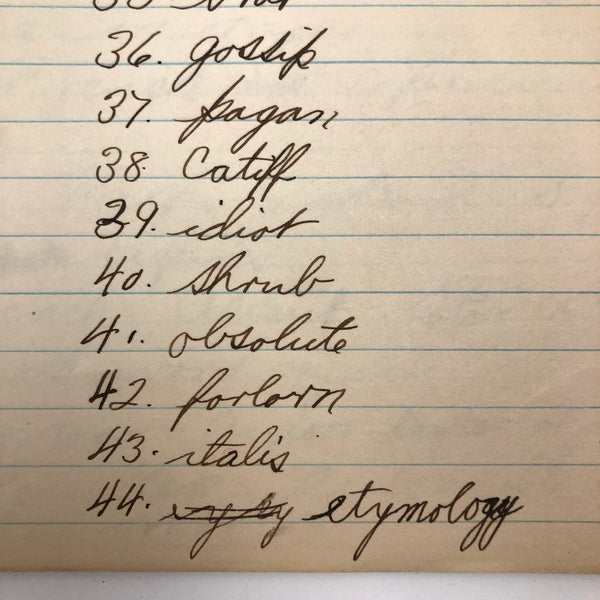 36. gossip
37. pagan
38. Catiff
39. idiot
40. shrub
41. obsolute
42. forlorn
43. italis
44. etymology